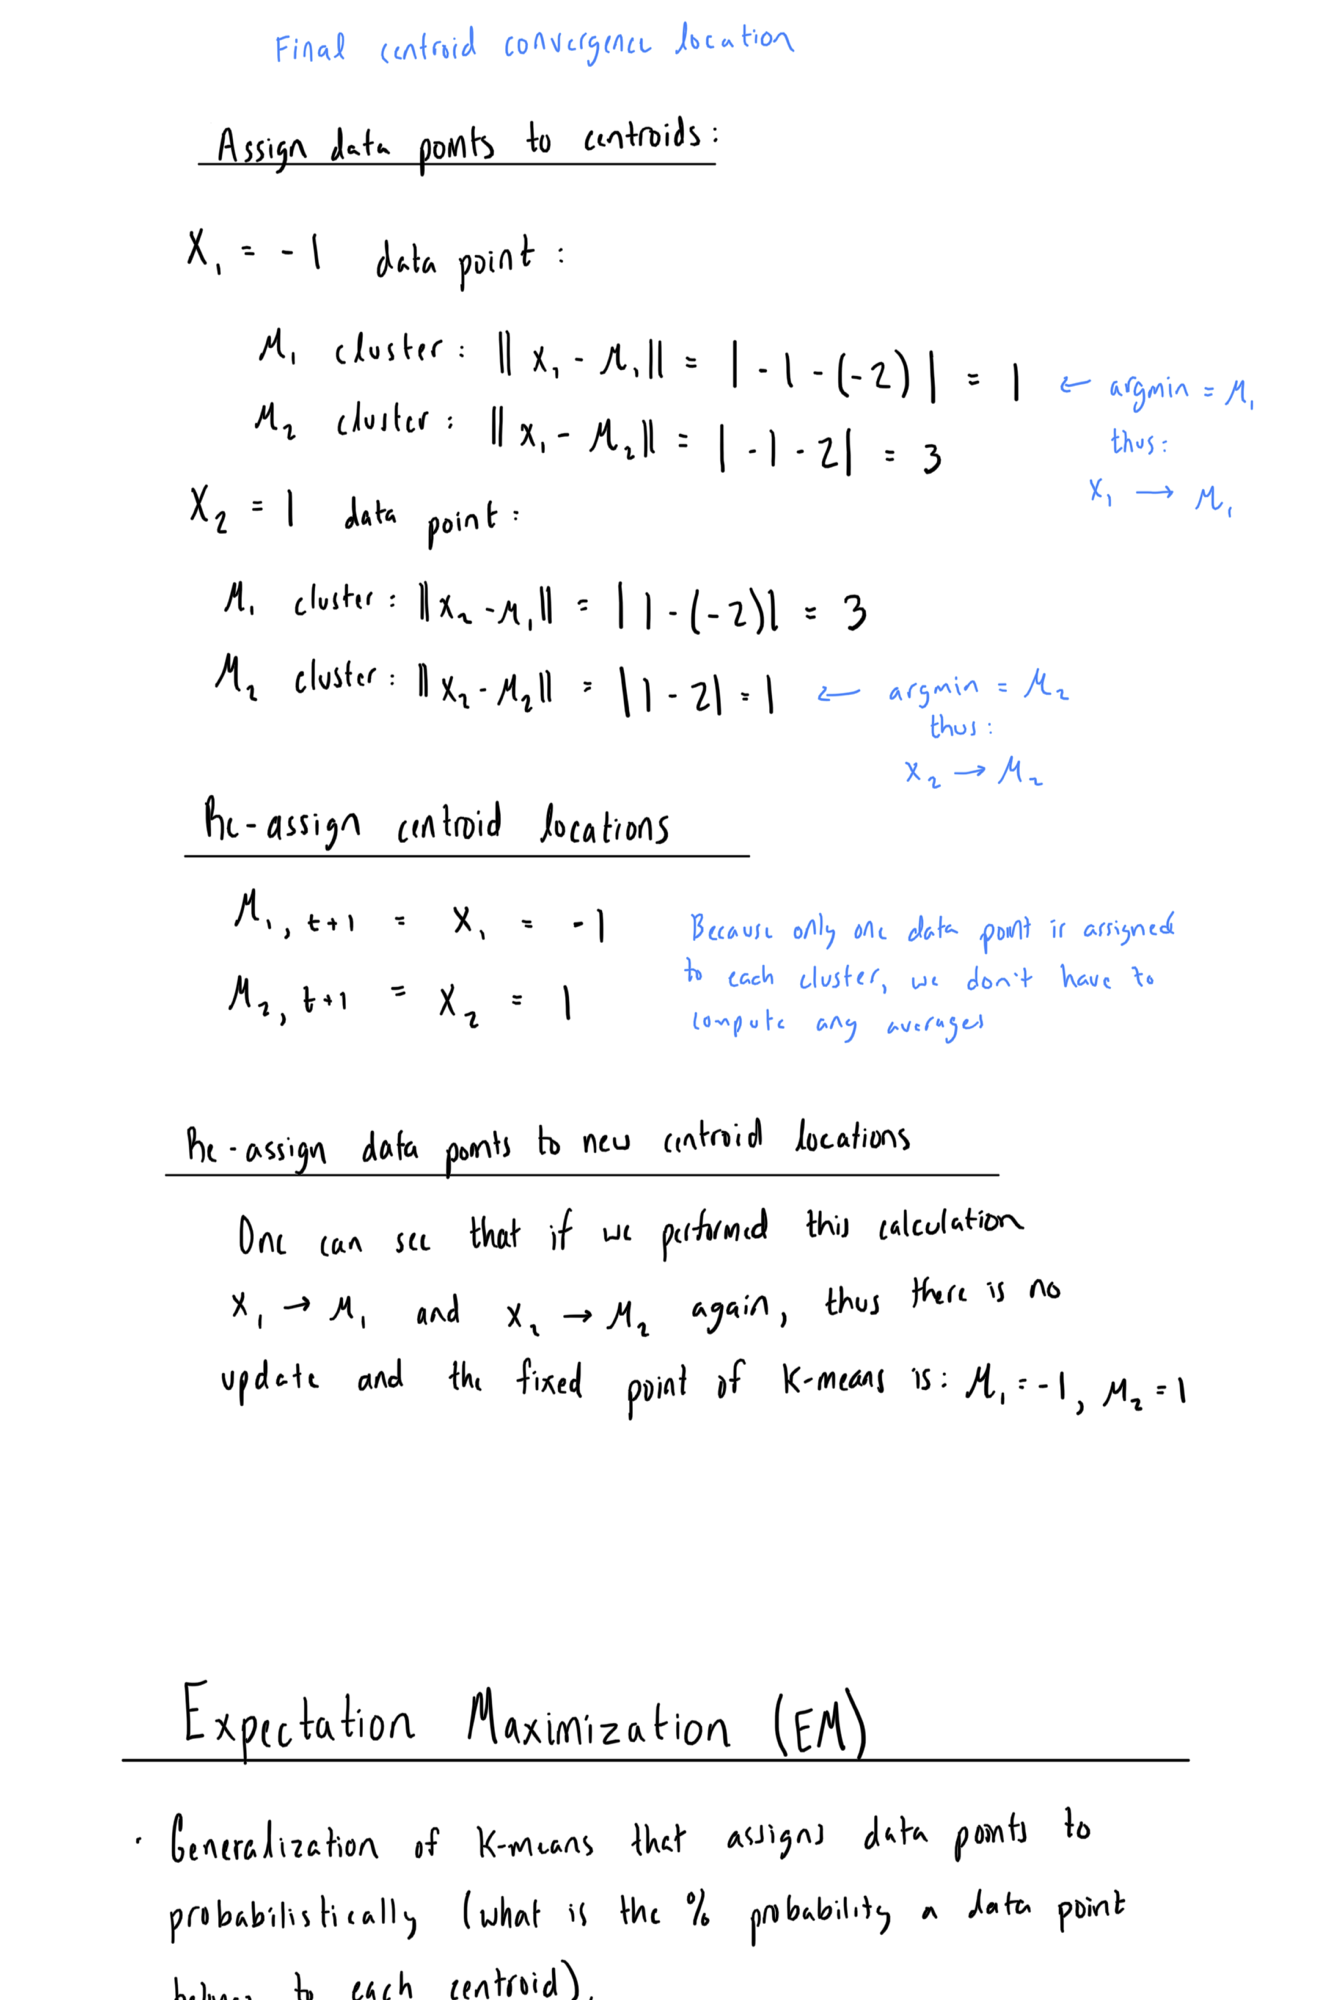 Final centroid convergence location
Assign data points to centroids:
X₁ = -1 data point:
μ₁ cluster: ‖x₁ - μ₁‖ = |-1-(-2)| = 1 ← argmin = μ₁
μ₂ cluster: ‖x₁ - μ₂‖ = |-1-2| = 3
thus:
x₁ → μ₁
X₂ = 1 data point:
μ₁ cluster: ‖x₂ - μ₁‖ = |1-(-2)| = 3
μ₂ cluster: ‖x₂ - μ₂‖ = |1-2| = 1 ← argmin = μ₂
thus:
x₂ → μ₂
Re-assign centroid locations
μ₁, t+1 = x₁ = -1
μ₂, t+1 = x₂ = 1
Because only one data point is assigned
to each cluster, we don't have to
compute any averages
Re-assign data points to new centroid locations
One can see that if we performed this calculation
x₁ → μ₁ and x₂ → μ₂ again, thus there is no
update and the fixed point of K-means is: μ₁ = -1, μ₂ = 1
Expectation Maximization (EM)
· Generalization of K-means that assigns data points to
probabilistically (what is the % probability a data point
belongs to each centroid).